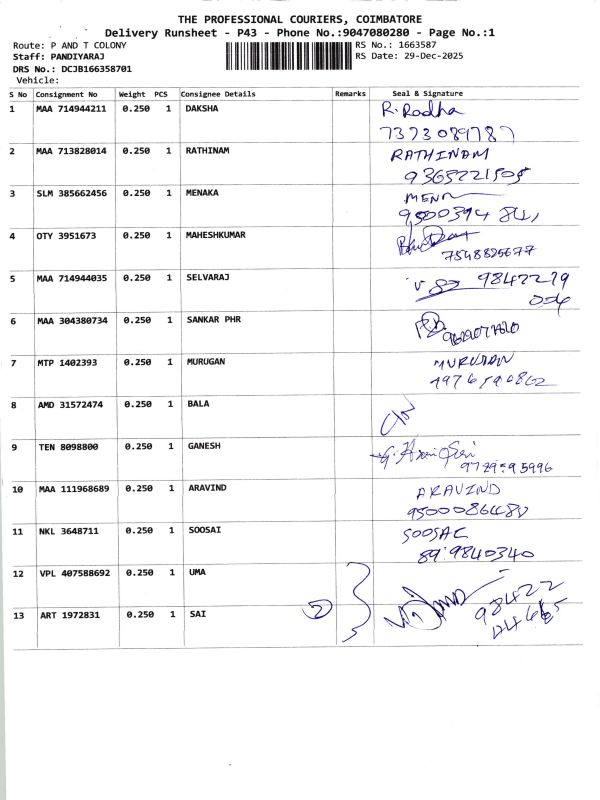 THE PROFESSIONAL COURIERS, COIMBATORE
Delivery Runsheet - P43 - Phone No.:9047080280 - Page No.:1
Route: P AND T COLONY
RS No.: 1663587
Staff: PANDIYARAJ
RS Date: 29-Dec-2025
DRS No.: DCJB166358701
Vehicle:
S No Consignment No Weight PCS Consignee Details Remarks Seal & Signature
1 MAA 714944211 0.250 1 DAKSHA R. Radha
2 MAA 713828014 0.250 1 RATHINAM RATHINAM
9365221505
3 SLM 385662456 0.250 1 MENAKA
4 OTY 3951673 0.250 1 MAHESHKUMAR
7548825677
5 MAA 714944035 0.250 1 SELVARAJ 9842219
6 MAA 304380734 0.250 1 SANKAR PHR
7 MTP 1402393 0.250 1 MURUGAN MURUGAN
8 AMD 31572474 0.250 1 BALA
9 TEN 8098800 0.250 1 GANESH
10 MAA 111968689 0.250 1 ARAVIND ARAVIND
9500086480
11 NKL 3648711 0.250 1 SOOSAI SOOSAI
12 VPL 407588692 0.250 1 UMA
98422
13 ART 1972831 0.250 1 SAI 2